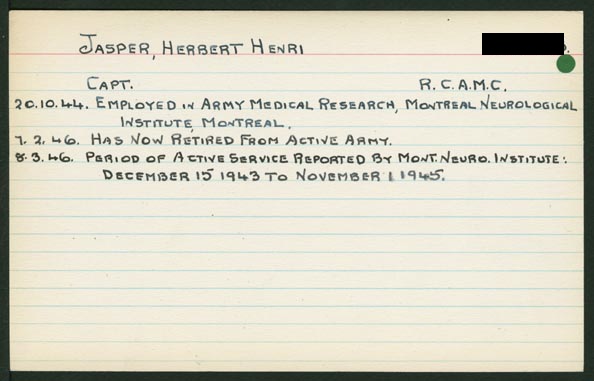 JASPER, HERBERT HENRI
CAPT. R.C.A.M.C.
20.10.44. EMPLOYED IN ARMY MEDICAL RESEARCH, MONTREAL NEUROLOGICAL
INSTITUTE, MONTREAL.
7.2.46. HAS NOW RETIRED FROM ACTIVE ARMY.
8.3.46. PERIOD OF ACTIVE SERVICE REPORTED BY MONT. NEURO. INSTITUTE:
DECEMBER 15 1943 TO NOVEMBER 1 1945.